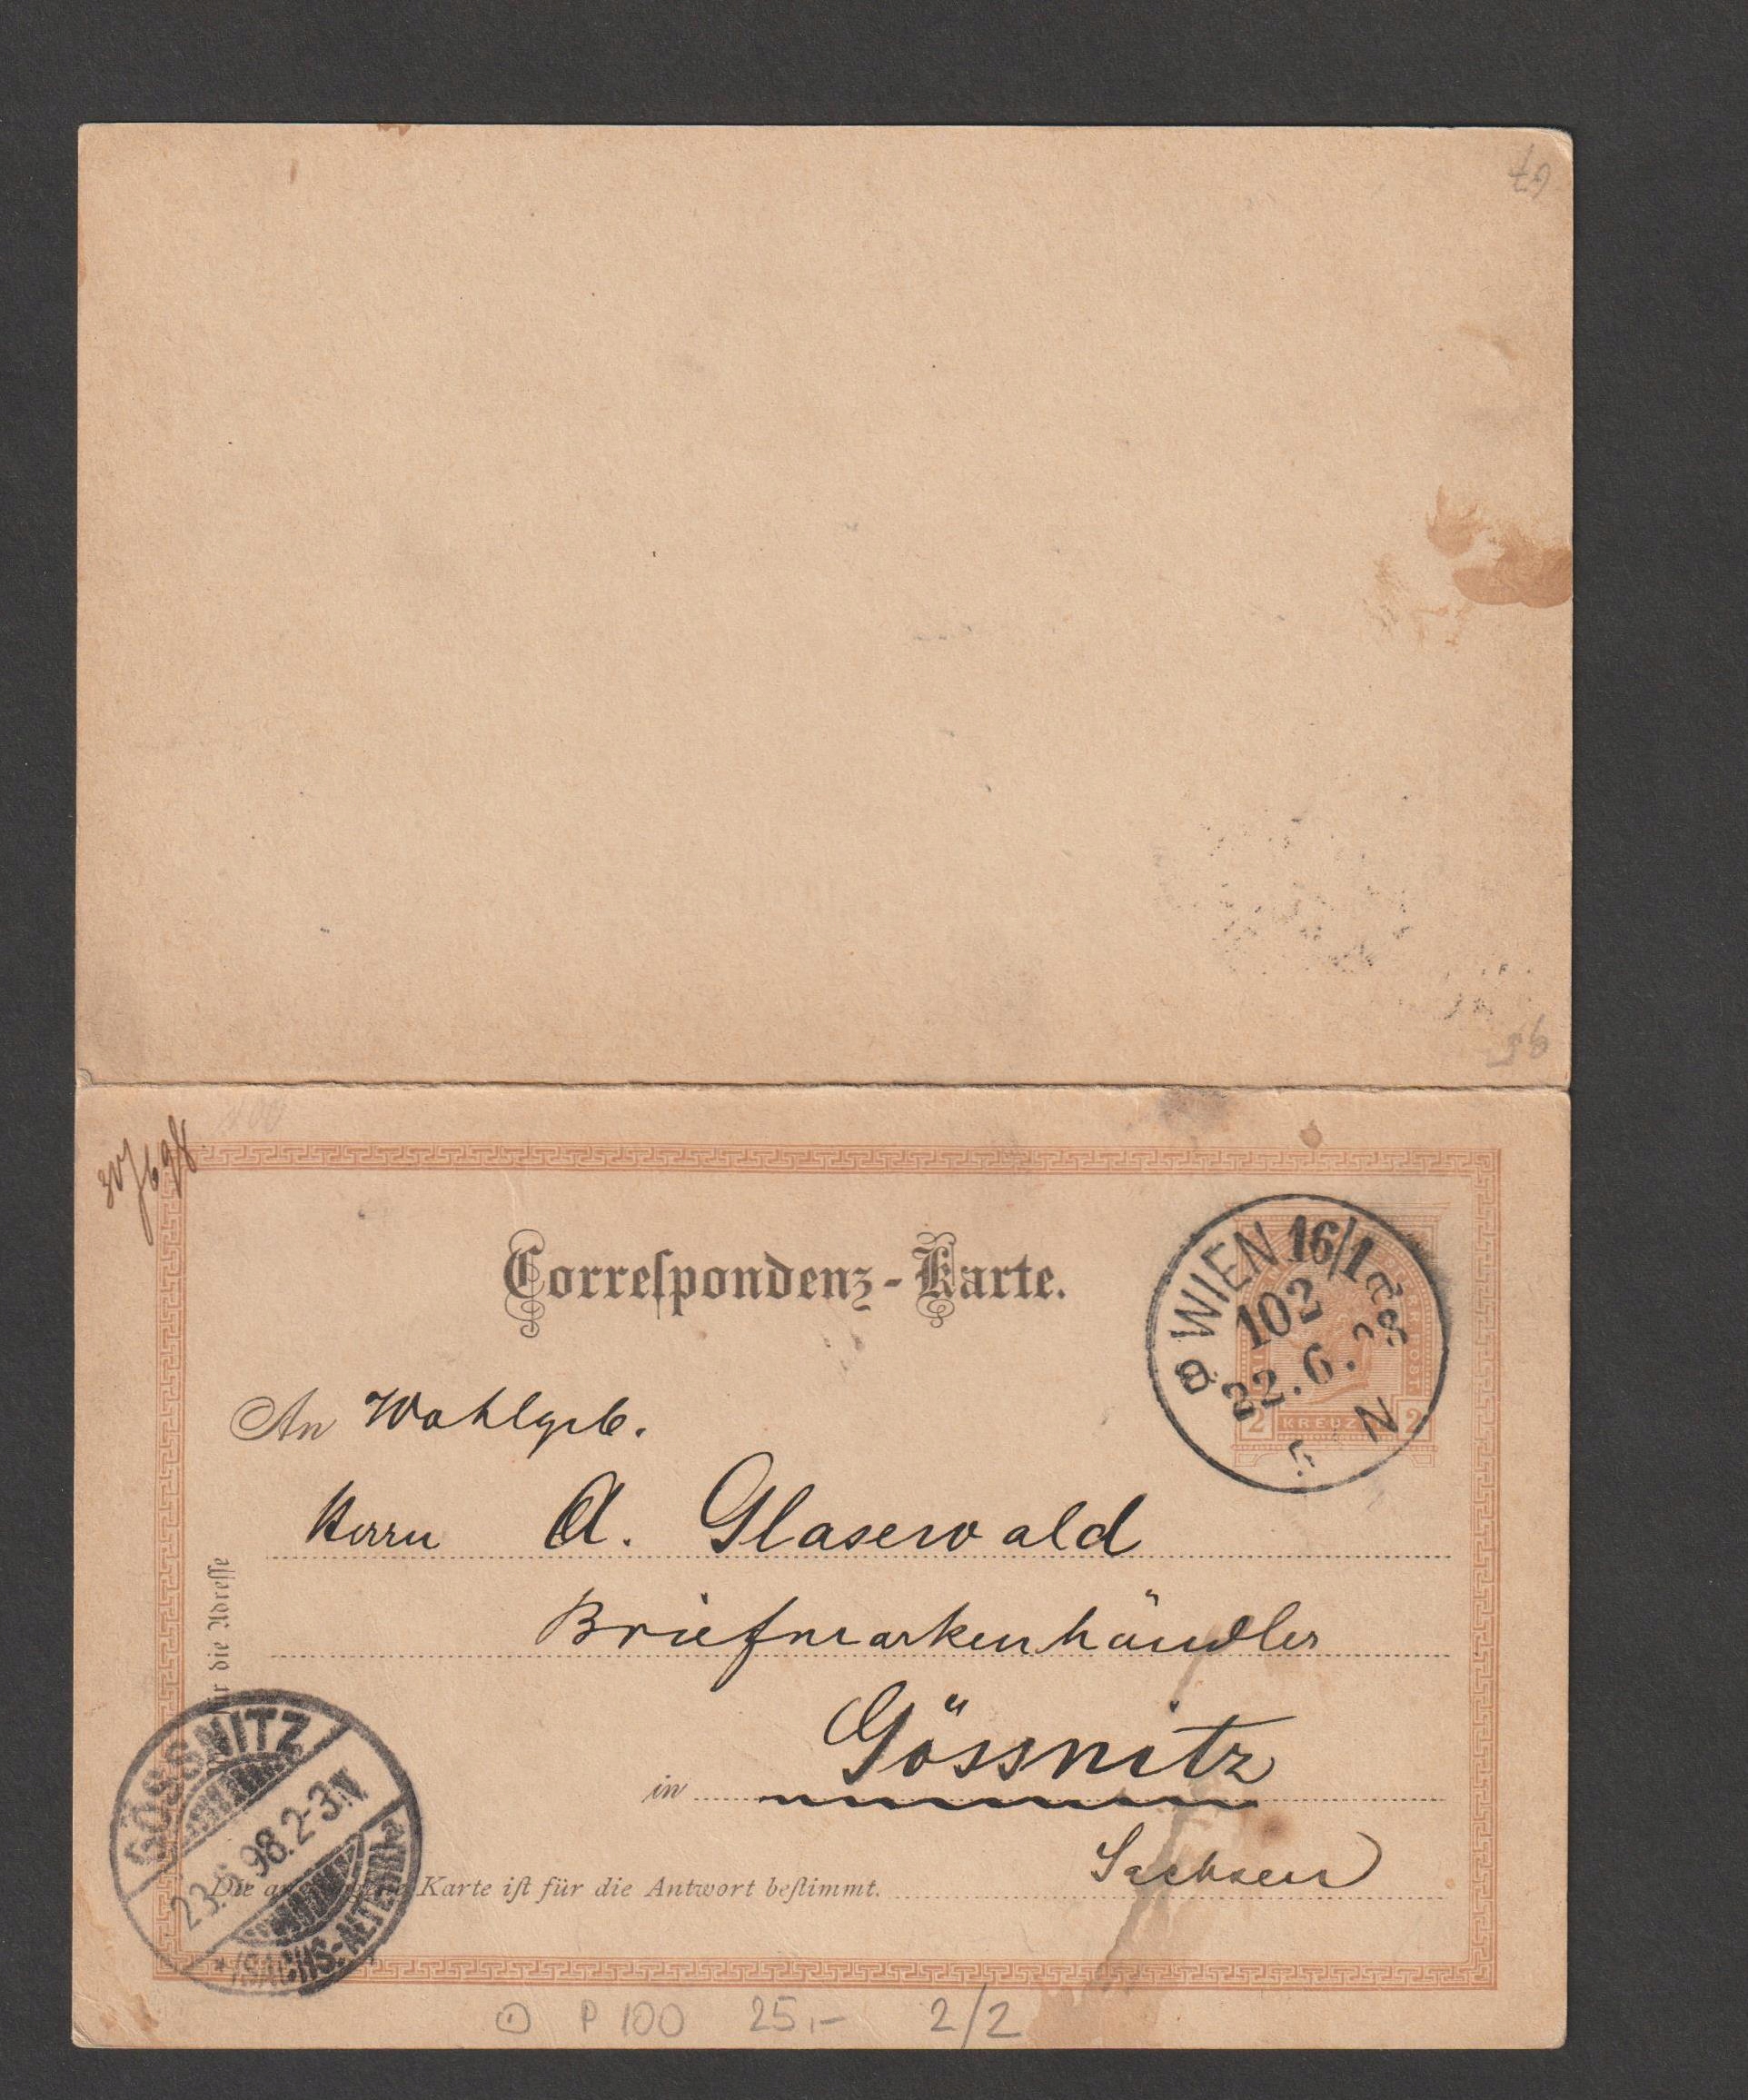 67
95
30/6 98
100
Correſpondenz-Karte.
WIEN 16/1
102
22.6.98
5 N
2 KREUZER 2
An Wohlgeb.
Herrn A. Glasewald
Briefmarkenhändler
in Gössnitz
Sachsen
für die Adreſſe
GÖSSNITZ
23.6.98.2-3N
*(SACHS.-ALTENB.)a
Die Karte iſt für die Antwort beſtimmt.
P 100 25,- 2/2